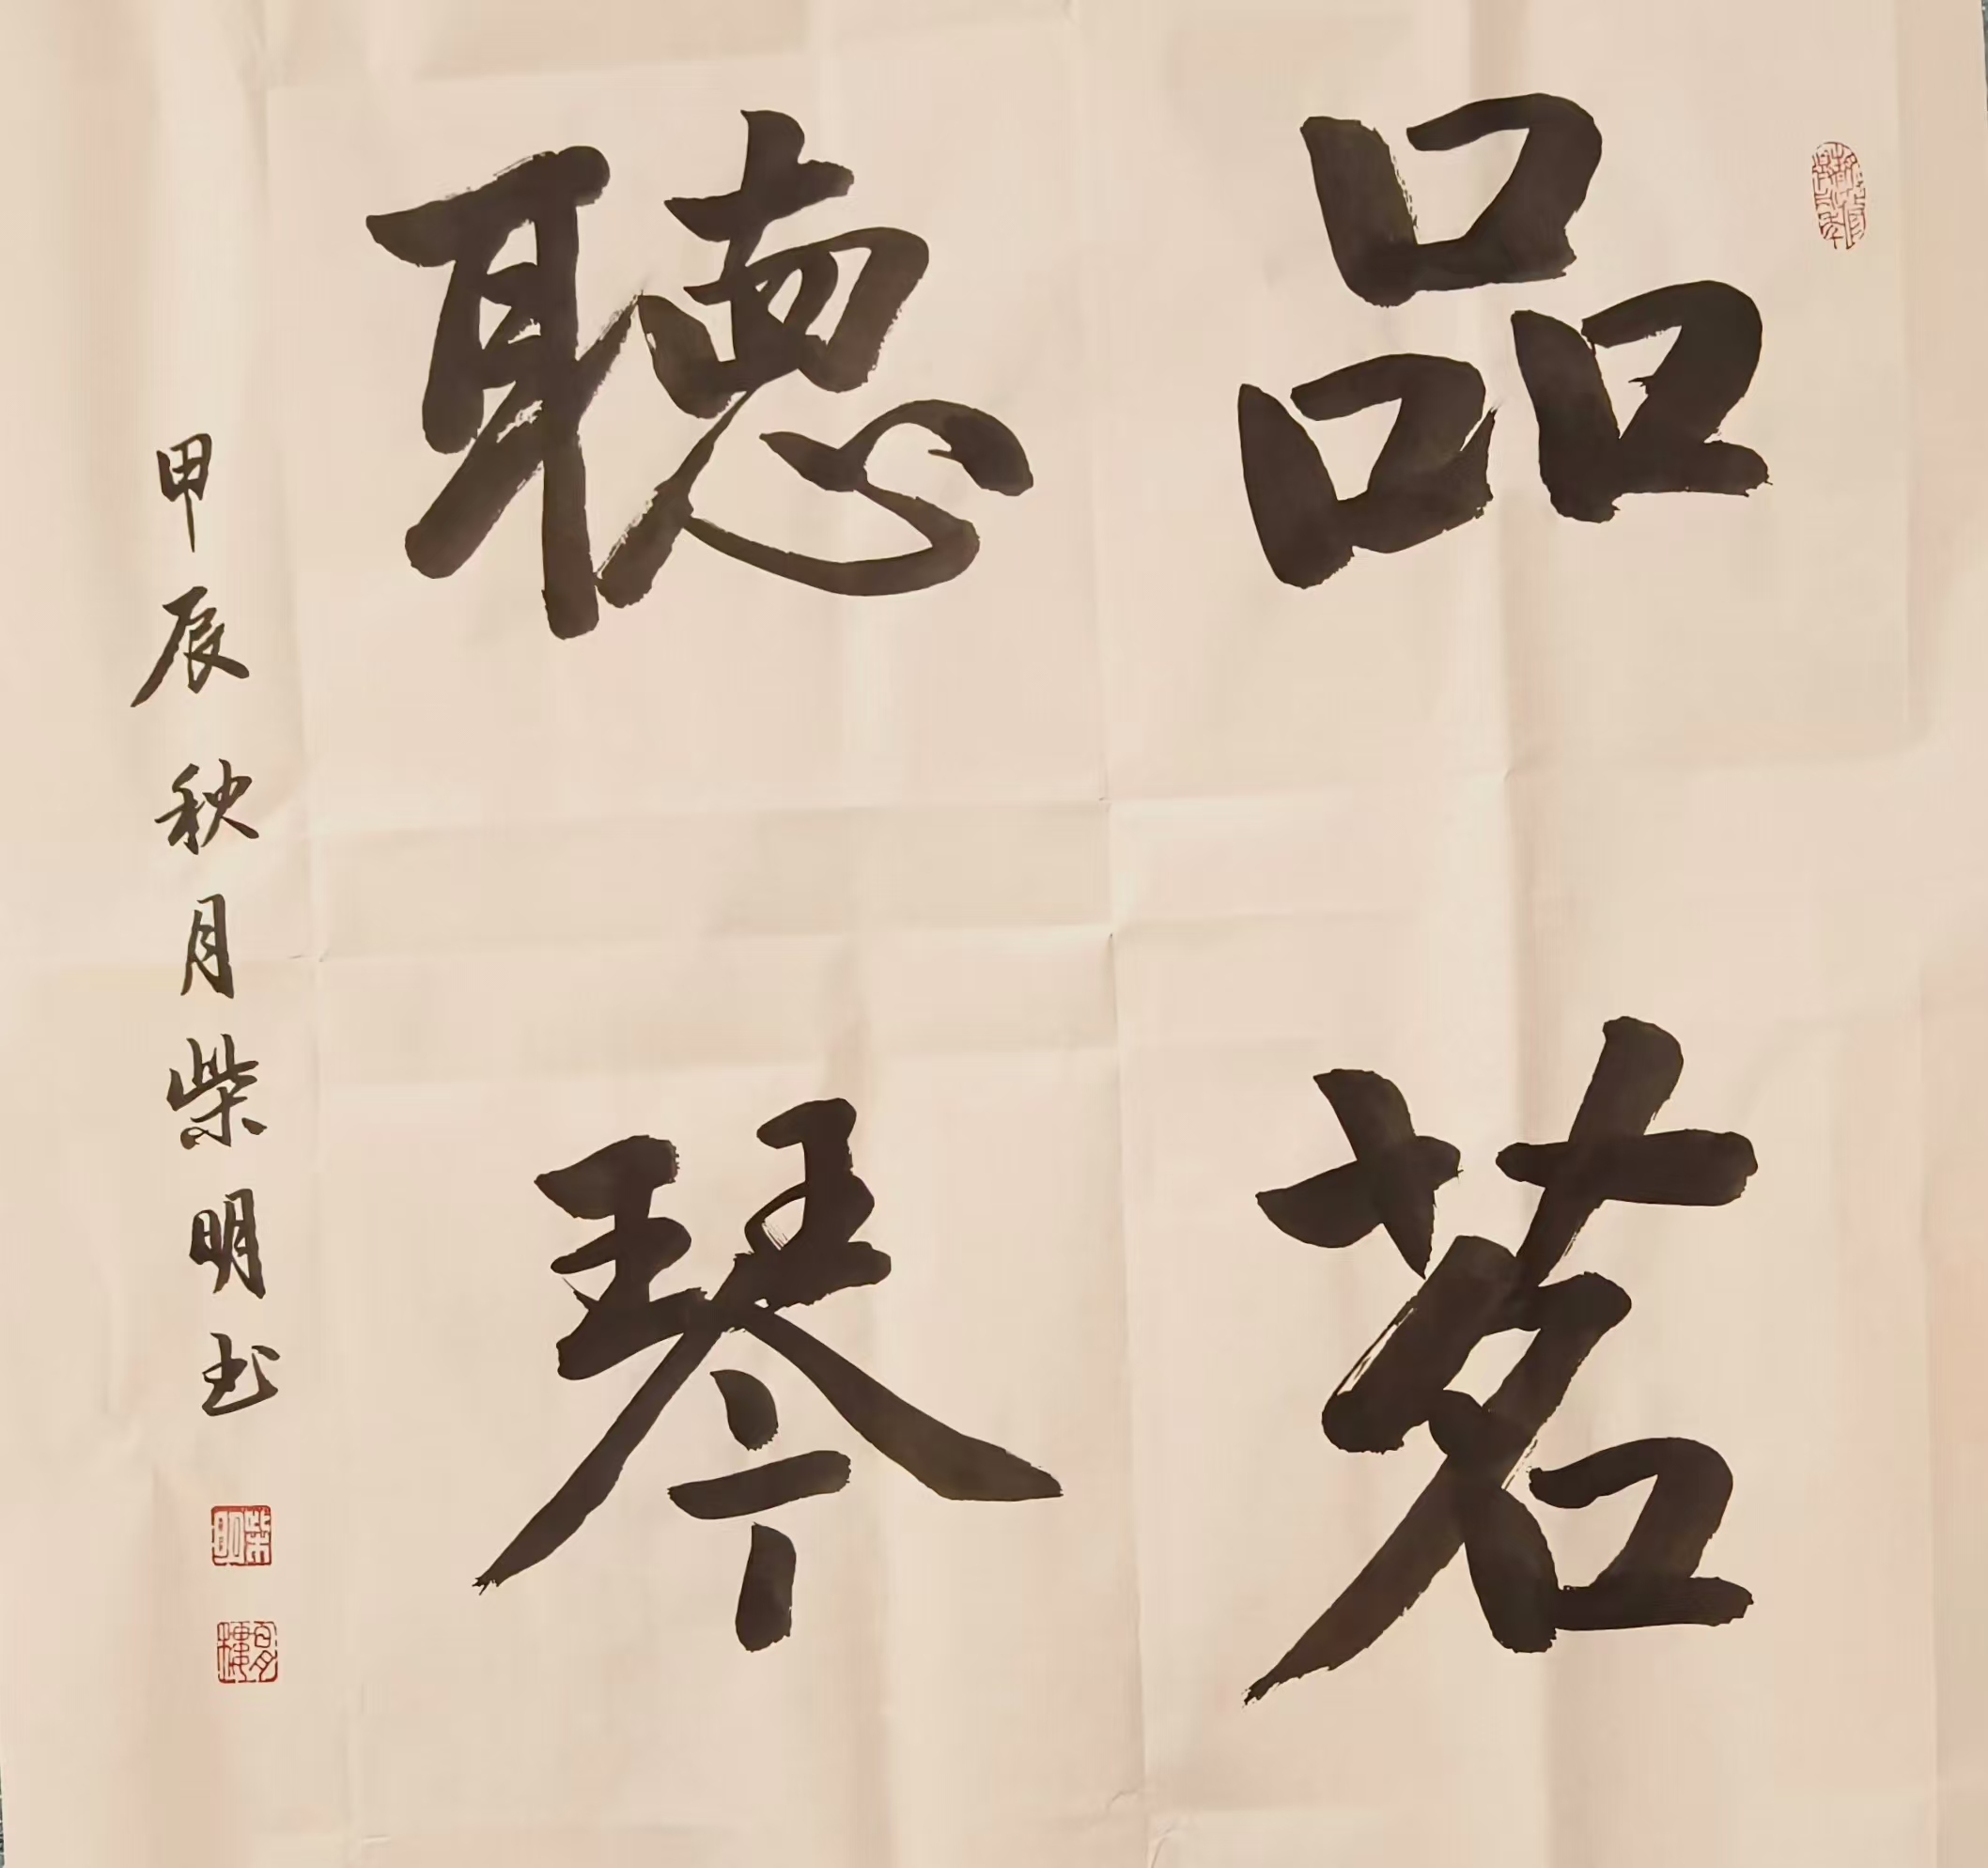 品茗
聽琴
甲辰秋月柴明书
柴明